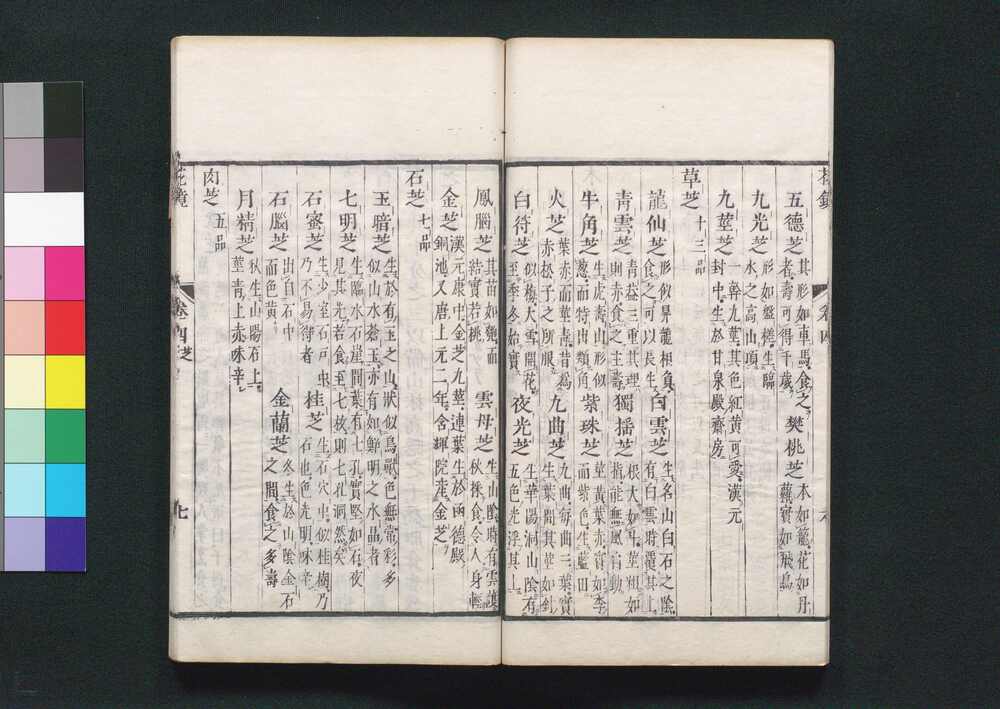 五德芝 其形如車馬食之 者壽可得千歲 樊桃芝 木如籠花如丹 蘿實如飛鳥
九光芝 形如盤槎生臨 水之高山頂
九莖芝 一幹九莖其色紅黃可愛漢元 封中生於甘泉殿齋房
草芝 十三品
龍仙芝 形似昇龍相負 食之可以長生 白雲芝 生名山白石之陰 有白雲時覆其上
青雲芝 青蓋三重其理 則赤食之主壽 獨搖芝 根大如斗莖粗如 指能無風自動
牛角芝 生虎壽山形似 蔥而特出類角 紫珠芝 莖黃葉赤實如李 而紫色生藍田
火芝 葉赤而莖青昔爲 赤松子之所服 九曲芝 九曲每曲三葉實 生葉間其莖如針
白符芝 似梅大雪開花 至季冬始實 夜光芝 生華陽洞山陰有 五色光浮其上
鳳腦芝 其苗如匏而 結實若桃 雲母芝 生山陰時有雲護 秋採食令人身輕
金芝 漢元康中金芝九莖連葉生於函德殿 銅池又唐上元二年含輝院產金芝
石芝 七品
玉暗芝 生於有玉之山狀似鳥獸色無常彩多 似山水蒼玉亦有如鮮明之水晶者
七明芝 生臨水石崖間葉有七孔實堅如石夜 見其光若食至七枚則七孔洞然矣
石蜜芝 生少室石戶中 乃不易得者 桂芝 生石穴中似桂樹乃 石也色光明味辛
石腦芝 出自石中 而色黃 金蘭芝 冬生於山陰金石 之間食之多壽
月精芝 秋生山陽石上 莖青上赤味辛
肉芝 五品
花鏡 卷四 芝 七
卷四